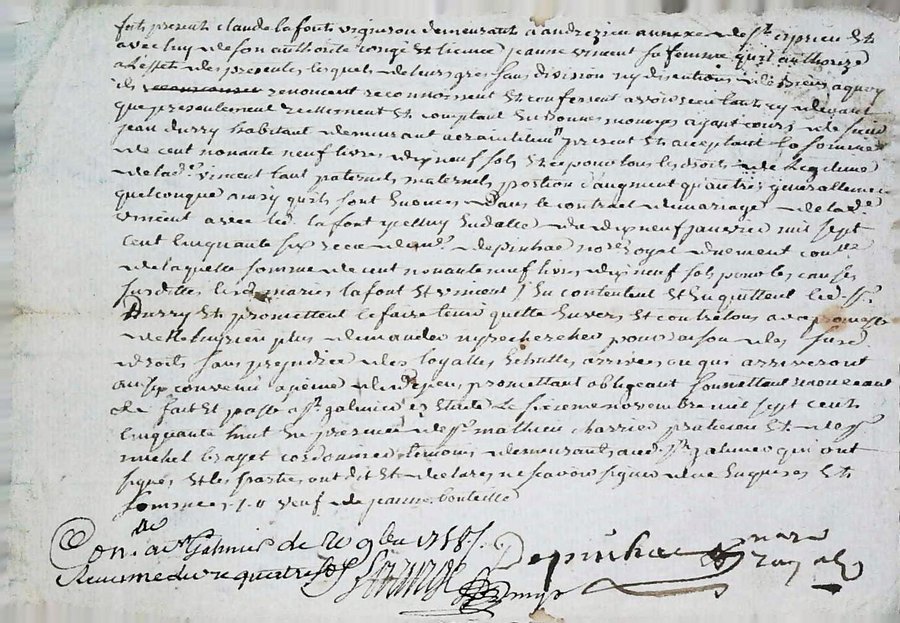 fut present claude lafont vigneron demeurant a andrezieu annexe de st ciprien Et
avec luy de son authorité congé Et licence jeanne vincent sa femme quil authorize
a Leffet des presentes lesquels de leurs grés sans division ny discution de biens a quoy
ils renoncent reconnoissent Et confessent avoir receu
que presentement reellement Et comptant En bonnes monoyes ayant cours de sieur
jean Durry habitant demeurant present Et acceptant La somme
de cent nonante neuf livres dix neuf sols Et ce pour tous les droits de Legitime
de lad.e vincent tant paternels maternels portion d'augment qu'autres generallement
quelconque ainsy quils sont Enoncés dans le contrat de mariage de lad.e
vincent avec led. la font y celluy En datte du dix neuf janvier mil sept
cent Cinquante six receu de me Depinhac no.re royal duement con.llé
de laquelle somme de cent nonante neuf livres dix neuf sols pour les causes
susdittes lesd. mariés lafont Et vincent Se contentent Et En quittent led. sr.
Durry Et promettent le faire tenir quitte Envers Et contre tous avec promesse
de ne luy rien plus demander ny rechercher pour raison des susd.
droits sans prejudice des loyalles Echuttes arrivées ou qui arriveront
ainsy convenu a peine de depens promettant obligeant soumettant renonceant
&c fait Et passé a st. galmier Ez Etude Le sixieme novembre mil sept cent
Cinquante huit En presence de sr. mathieu charrier praticien Et de sr
michel brazet cordonnier temoins demeurants aud. st. galmier qui ont
signés Et les parties ont dit Et declarés ne scavoir signer de ce Enquises Et
sommées veuf de jeanne bouteille
Con.llé a st Galmier le 9bre 1758
Receu
Depinhac
nore
royal